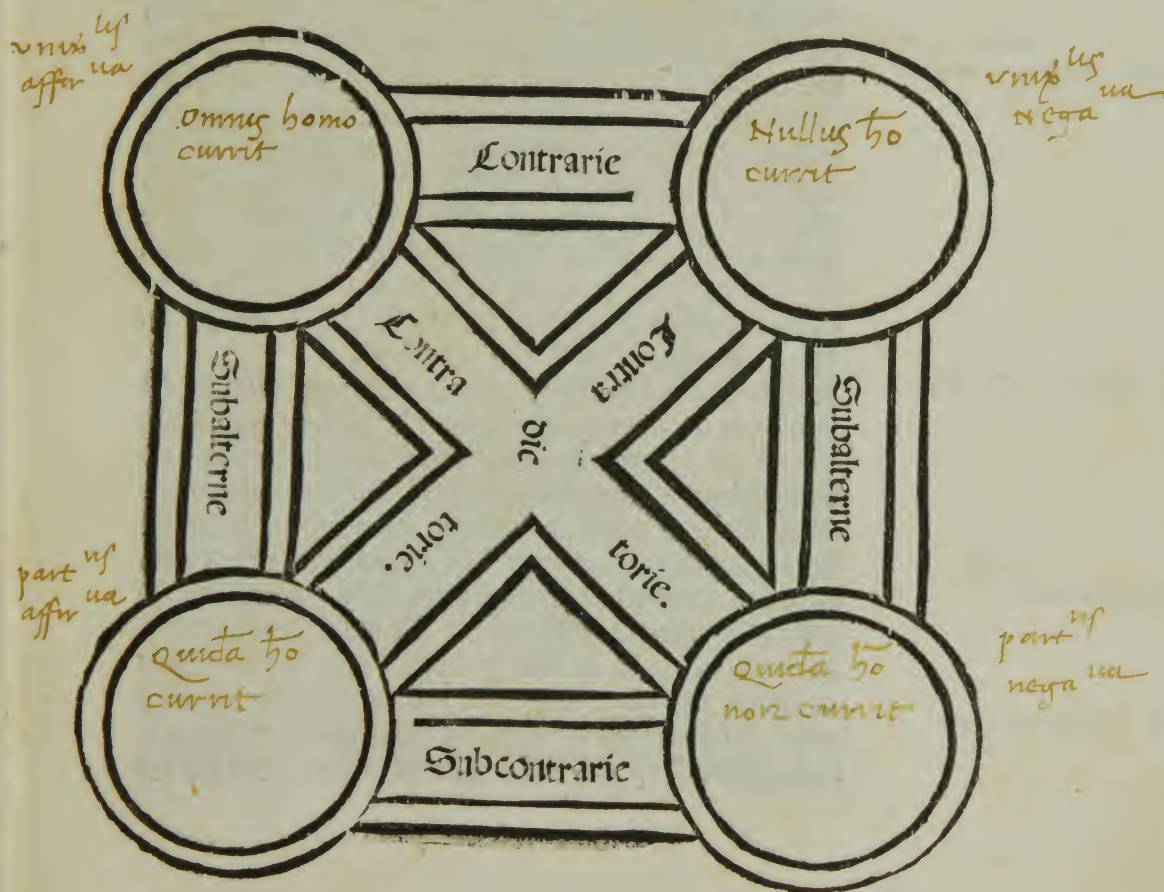 vniu͛ us
affir ua
Omnis homo
currit
Contrarie
Nullus ho̅
currit
vniu͛ us
nega ua
Subalterne
Contra
Contra
dic
torie.
torie.
Subalterne
part us
affir ua
Quida̅ ho̅
currit
Subcontrarie
Quida̅ ho̅
non currit
part us
nega ua